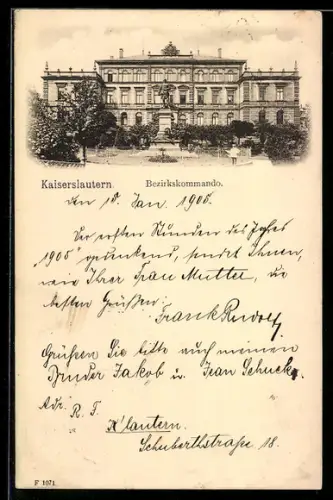 Kaiserslautern   Bezirkskommando.
den 10. Jan. 1905.
Der ersten Stunden des Jahres
"1905" gedenkend, sendet Ihnen,
wie Ihrer Frau Mutter, die
besten Grüßen:
Frank Rudolf
Grüßen Sie bitte auch meinen
Bruder Jakob u. Jean Schuck.
Adr. R. F.
K'lautern.
Schuberthstraße 18.
F 1071